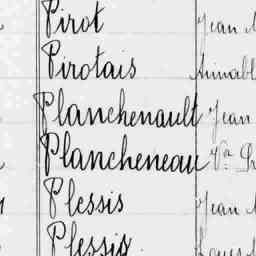 Pirot Jean
Pirotais Aimabl
Planchenault Jean
Plancheneau Vve
Plessis Jean
Plessis Louis